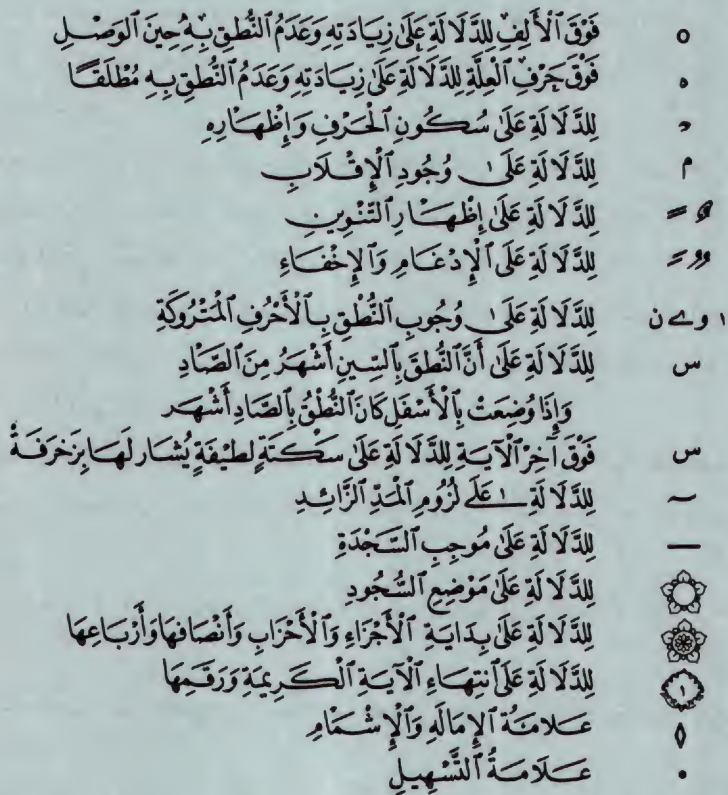 ه فَوْقَ ٱلْأَلِفِ لِلدَّلَالَةِ عَلَىٰ زِيَادَتِهِ وَعَدَمُ ٱلنُّطْقِ بِهِ حِينَ ٱلوَصْلِ
ه فَوْقَ حَرْفِ ٱلْعِلَّةِ لِلدَّلَالَةِ عَلَىٰ زِيَادَتِهِ وَعَدَمُ ٱلنُّطْقِ بِهِ مُطْلَقًا
لِلدَّلَالَةِ عَلَىٰ سُكُونِ ٱلْحَرْفِ وَإِظْهَارِهِ
م لِلدَّلَالَةِ عَلَىٰ وُجُودِ ٱلْإِقْلَابِ
لِلدَّلَالَةِ عَلَىٰ إِظْهَارِ ٱلتَّنْوِينِ
لِلدَّلَالَةِ عَلَى ٱلْإِدْغَامِ وَٱلْإِخْفَاءِ
ا و ے ن لِلدَّلَالَةِ عَلَىٰ وُجُوبِ ٱلنُّطْقِ بِٱلْأَحْرُفِ ٱلْمَتْرُوكَةِ
س لِلدَّلَالَةِ عَلَىٰ أَنَّ ٱلنُّطْقَ بِٱلسِّينِ أَشْهَرُ مِنَ ٱلصَّادِ
وَإِذَا وُضِعَتْ بِٱلْأَسْفَلِ كَانَ ٱلنُّطْقُ بِٱلصَّادِ أَشْهَر
س فَوْقَ آخِرِ ٱلْآيَةِ لِلدَّلَالَةِ عَلَىٰ سَكْتَةٍ لَطِيفَةٍ يُشَار لَهَا بِزَخْرَفَةْ
لِلدَّلَالَةِ عَلَے لُزُومِ ٱلْمَدِّ ٱلزَّائِدِ
لِلدَّلَالَةِ عَلَىٰ مُوجِبِ ٱلسَّجْدَةِ
لِلدَّلَالَةِ عَلَىٰ مَوْضِعِ ٱلسُّجُودِ
لِلدَّلَالَةِ عَلَىٰ بِدَايَةِ ٱلْأَجْزَاءِ وَٱلْأَحْزَابِ وَأَنْصَافِهَا وَأَرْبَاعِهَا
١ لِلدَّلَالَةِ عَلَىٰ ٱنتِهَاءِ ٱلْآيَةِ ٱلْكَرِيمَةِ وَرَقَمِهَا
عَلَامَةُ ٱلإِمَالَهِ وَٱلْإِشْمَامِ
عَلَامَةُ ٱلتَّسْهِيلِ